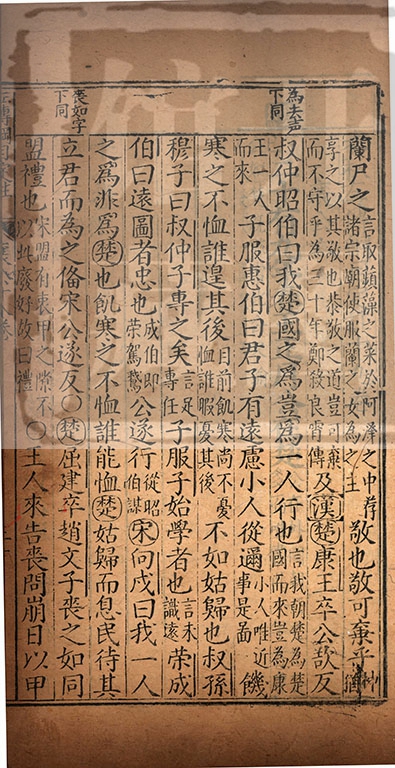 蘭尸之言取蘋藻之菜於阿澤之中荐諸宗廟使服蘭之女為之主敬也敬可棄乎
享之以其敬也恭敬之道豈可棄而不守乎為三十年鄭殺良霄傳及漢楚康王卒公欲反
為去声下同
叔仲昭伯曰我楚國之爲豈爲一人行也言我朝楚為楚國而來豈為康
王一人而來子服惠伯曰君子有遠慮小人從邇小人唯近事是啚饑
寒之不恤誰遑其後目前飢寒尚不憂恤誰暇憂其後不如姑歸也叔孫
穆子曰叔仲子專之矣言足專任子服子始學者也言未識遠榮成
伯曰遠圖者忠也成伯即榮駕鵞公遂行從昭伯謀宋向戌曰我一人
之爲非爲楚也飢寒之不恤誰能恤楚姑歸而息民待其
喪如字下同
立君而為之俻宋公遂反○楚屈建卒趙文子喪之如同
盟禮也宋盟有衷甲之隙不以此廢好故曰禮○王人來告喪問崩日以甲